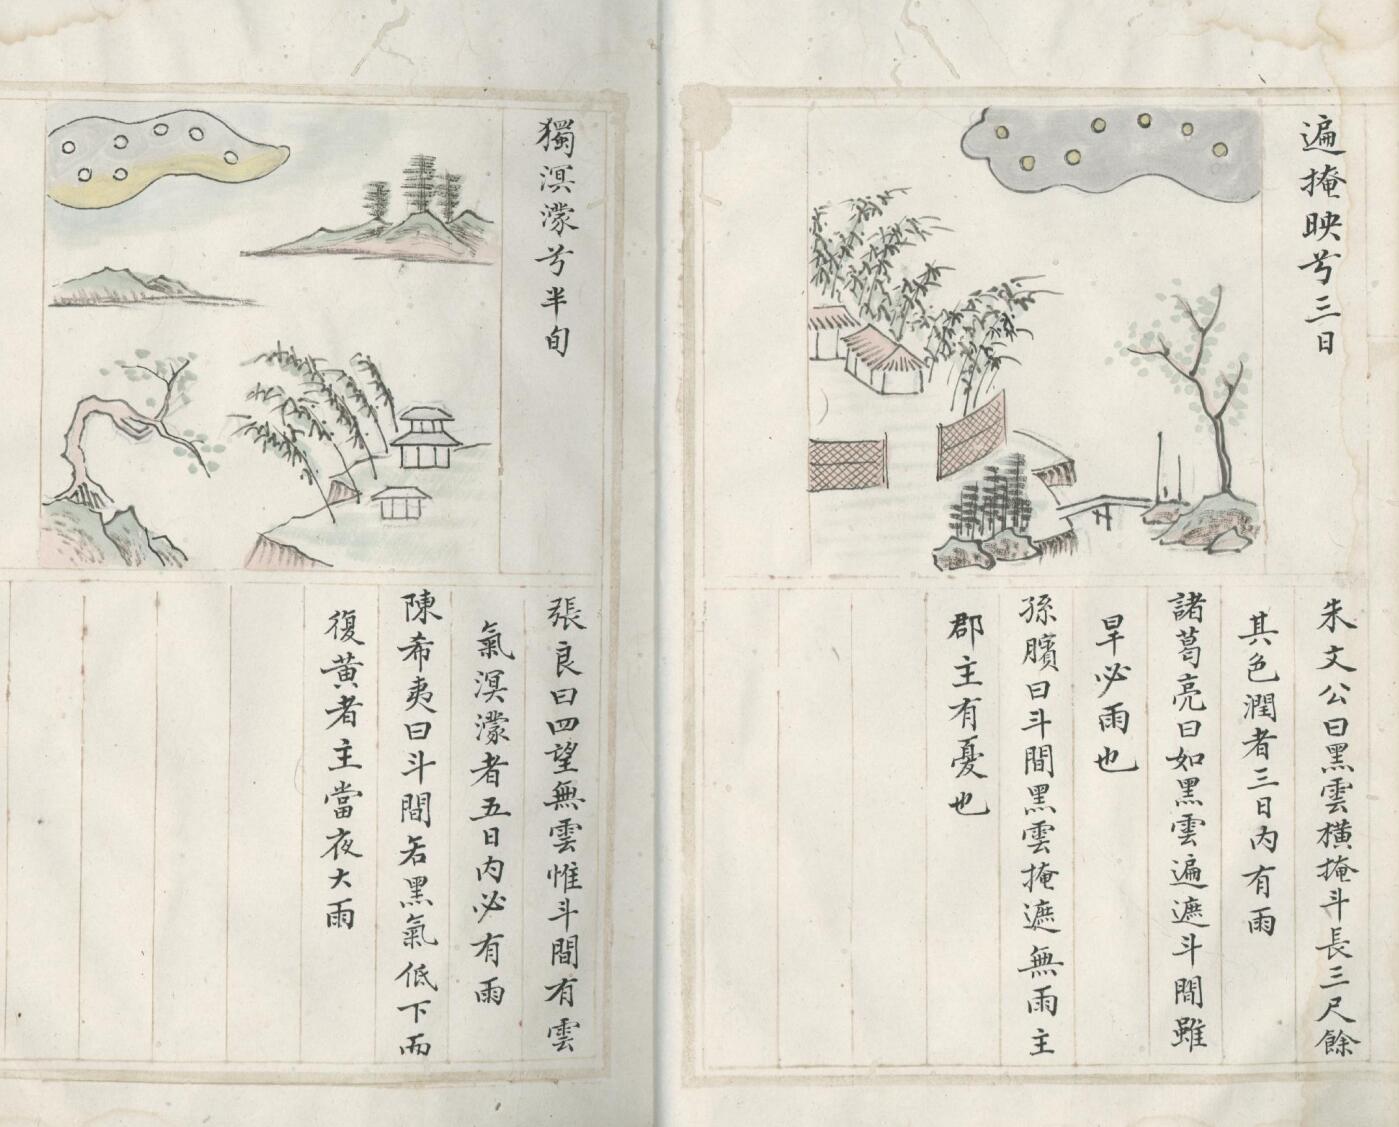 遍掩映兮三日
朱文公曰黑雲橫掩斗長三尺餘
其色潤者三日內有雨
諸葛亮曰如黑雲遍遮斗間雖
旱必雨也
孫臏曰斗間黑雲掩遮無雨主
郡主有憂也
獨溟濛兮半旬
張良曰四望無雲惟斗間有雲
氣溟濛者五日內必有雨
陳希夷曰斗間若黑氣低下而
復黄者主當夜大雨